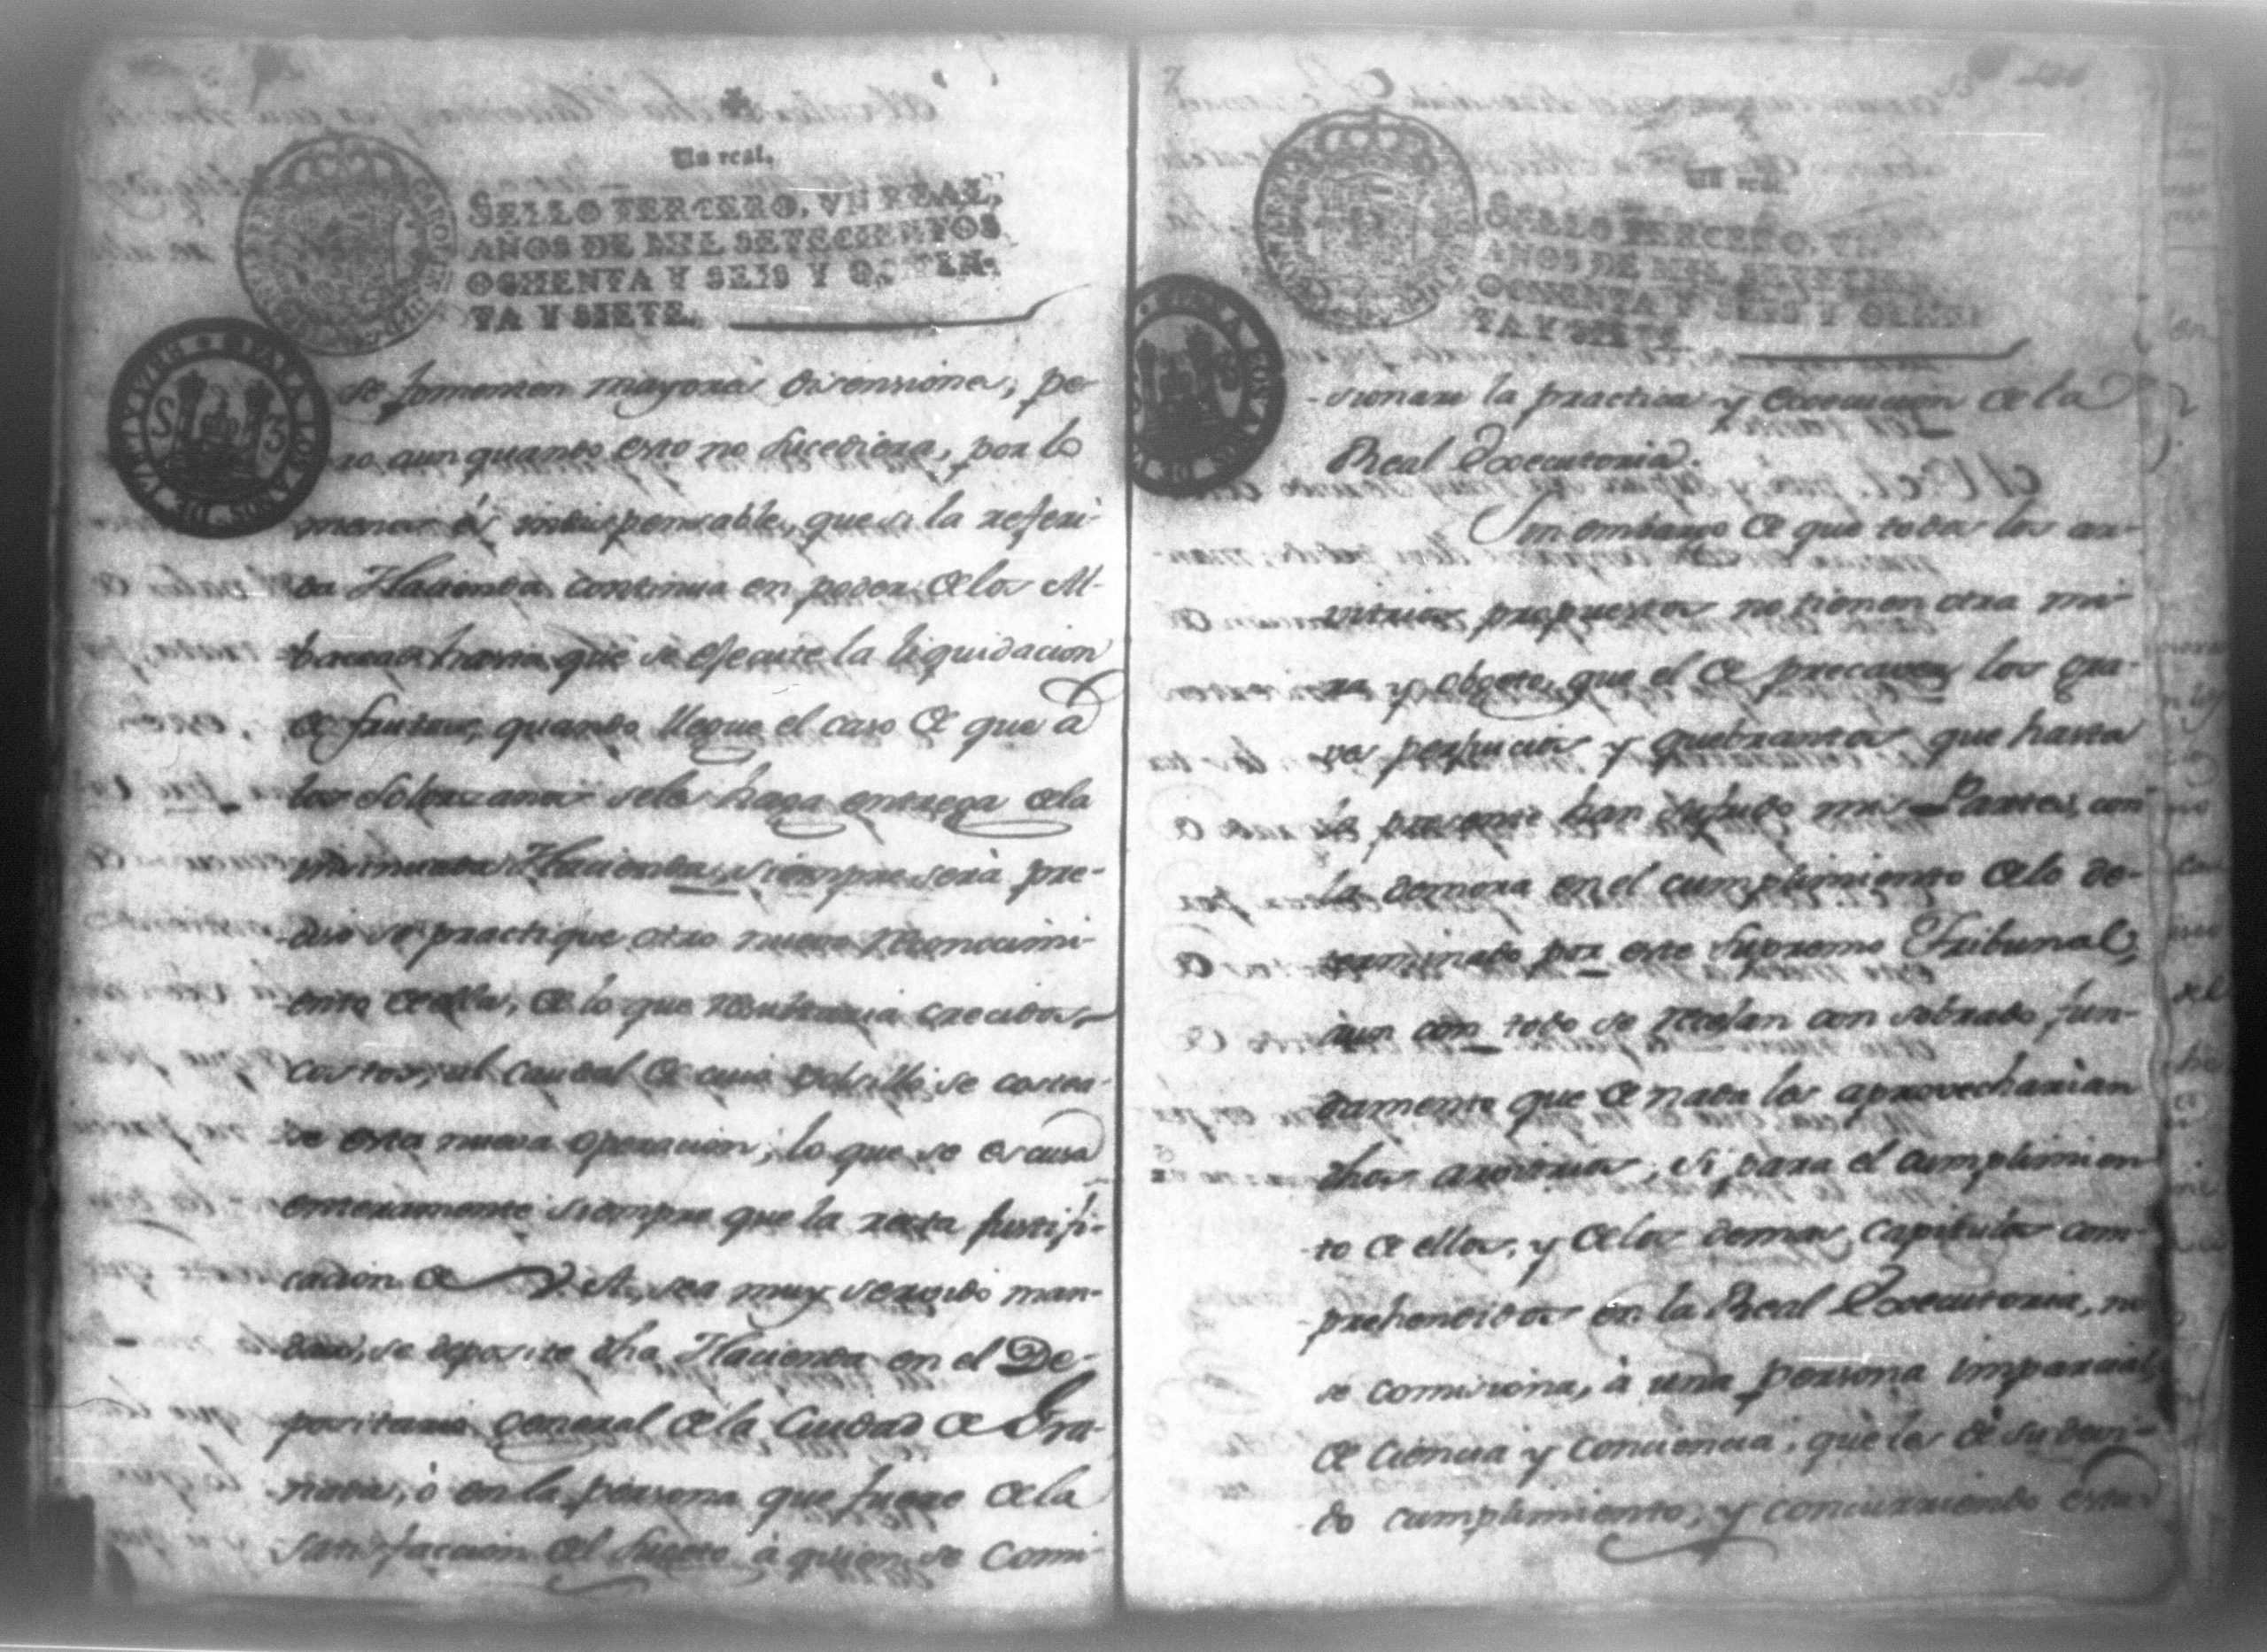 Un real.
SELLO TERCERO, VN REAL,
AÑOS DE MIL SETECIENTOS
OCHENTA Y SEIS Y OCHEN-
TA Y SIETE.
se fomenten mayores disensiones, pe-
ro aun quando esto no sucediera, por lo
menos és indispensable, que si la referi-
da Hacienda continua en poder de los Al-
baceas hasta que se efecute la liquidacion
de frutos, quando llegue el caso de que à
los Solorzanos seles haga entrega dela
Hacienda, siempre serà pre-
ciso se practique otro nuevo reconocimi-
ento de ella, de lo que resultaria crecidos
costos, al caudal de cuio bolsillo se costea-
se esta nueva operacion; lo que se escusa
enteramente siempre que la recta justifi-
cacion de V. A. sea muy servido man-
dar, se deposite dha Hacienda en el De-
positario General dela Ciudad de Gra-
nada, ò en la persona que fuere dela
satisfaccion del Sugeto à quien se Comi-
Un real.
SELLO TERCERO, VN
AÑOS DE MIL SETECIEN
OCHENTA Y SEIS Y OCHEN
TA Y SIETE
sionare la practica y Execucion de la
Real Executoria.
Sin embargo de que todos los ar-
vitrios propuestos no tienen otra mi-
ra y obgeto, que el de precaver los gra-
ves perjucios y quebrantos que hasta
lo presente han sufrido mis Partes, con
la demora en el cumplimiento delo de-
terminado por este Supremo Tribunal,
aun con todo se recelan con sobrado fun-
damento que de nada les aprovecharian
dhos arvitrios, si para el cumplimien
to de ellos, y delos demas Capitulos com-
prehendidos en la Real Executoria, no
se comisiona, à una persona imparcial,
de Ciencia y Conciencia, què les dè su devi-
do cumplimiento, y concurriendo estas